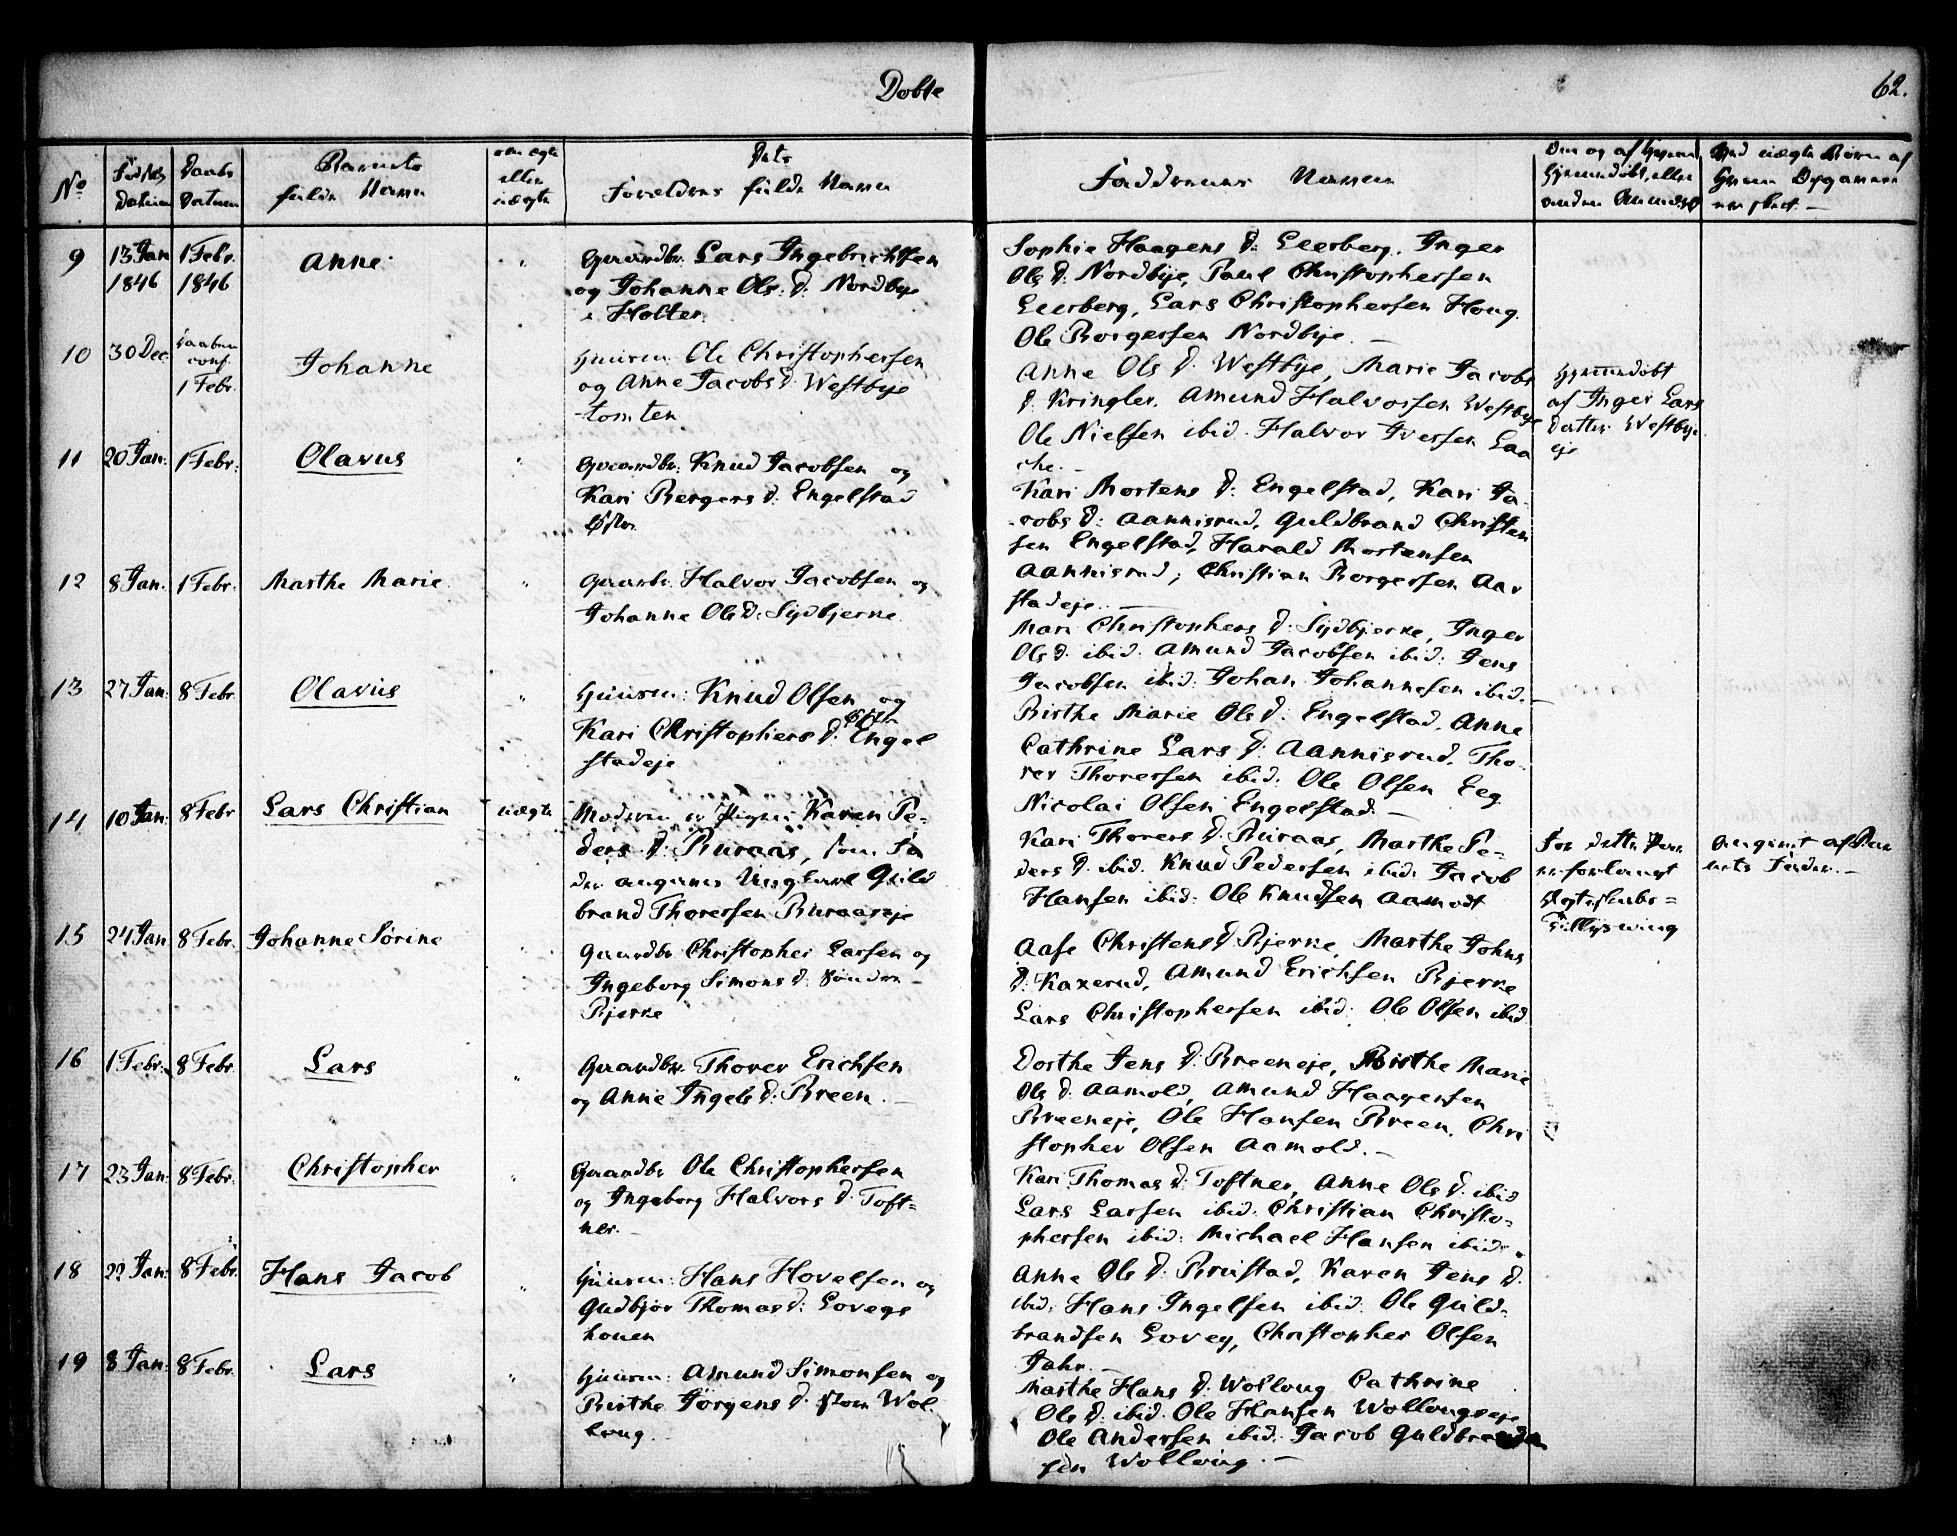 Døbte
62.
No
Fødsels Datum
Daabs Datum
Barnets fulde Navn
om ægte eller uægte
Dets Forældres fulde Navn
Faddernes Navne
Om og af hvem hjemmedøbt, eller anden Anmærk
Ved uægte Børn af hvem Opgaven er skeet.
9
13 Jan 1846
1 Febr. 1846
Anne
Gaardbr. Lars Ingebrichtsen
og Johanne Ols: d: Nordbye
i Holter.
Sophie Haagens d: Leerberg. Inger
Ols d: Nordbye, Paul Christophersen
Leerberg, Lars Christophersen Houg.
Ole Borgersen Nordbye.
10
30 Dec.
Daaben conf. 1 Febr.
Johanne
Huusm: Ole Christophersen
og Anne Jacobs d: Westbye
tomten
Anne Ols d: Westbye, Marie Jacobs
d: Kringler. Amund Halvorsen Westbye
Ole Nielsen ibid. Halvor Iversen Laa
che.
Hjemmedøbt
af Inger Lars
datter Westbye
eje
11
20 Jan.
1 Febr.
Olavus
Gaardbr: Knud Jacobsen og
Kari Bergers d: Engelstad
Østre.
Kari Mortens d: Engelstad, Kari Ja-
cobs d: Aannisrud, Guldbrand Christen
sen Engelstad, Harald Mortensen
Aannisrud, Christian Borgersen Aar
stadeje.
12
8 Jan.
1 Febr.
Marthe Marie
Gaardbr. Halvor Jacobsen og
Johanne Ols d: Sydbjerke.
Mari Christophers d: Sydbjerke, Inger
Ols d. ibid. Amund Jacobsen ibid. Jens
Jacobsen ibid. Johan Johannesen ibid.
13
27 Jan.
8 Febr
Olavus
Huusm: Knud Olsen og
Kari Christophers d: Østre Engel
stadeje
Birthe Marie Ols d: Engelstad. Anne
Cathrine Lars d: Aannisrud. Tho-
rer Thoresen ibid. Ole Olsen Eeg
Nicolai Olsen Engelstad.
14
10 Jan.
8 Febr
Lars Christian
uægte
Moderen er Pigen Karen Pe-
ders d: Buraas, som Fa
der angives Ungkarl Guld
brand Thoresen Buraaseje
Kari Thorers d: Buraas, Marthe Pe-
ders d ibid. Knud Pedersen ibid. Jacob
Hansen ibid: Ole Knudsen Aamodt
For dette Par
er forlangt
Ægteskabs-
Tillysning
Angivet af Bar
nets Fader.
15
24 Jan
8 Febr.
Johanne Sørine
Gaardbr Christopher Larsen og
Ingeborg Simons d: Søndre
Bjerke
Aase Christens d: Bjerke, Marthe Johns
d: Kaxerud, Amund Erichsen Bjerke
Lars Christophersen ibid: Ole Olsen ibid
16
1 Febr.
8 Febr.
Lars
Gaardbr. Thorer Erichsen
og Anne Ingels d: Breen.
Dorthe Jens d: Breeneje, Birthe Marie
Ols d: Aamold, Amund Haagensen
Breeneje, Ole Hansen Breen. Chri
stopher Olsen Aamold.
17
23 Jan.
8 Febr.
Christopher
Gaardbr Ole Christophersen
og Ingeborg Halvors d: Toft-
ner.
Kari Thomas d: Toftner, Anne Ols d. ibid
Lars Larsen ibid. Christian Christo-
phersen ibid. Michael Hansen ibid.
18
22 Jan.
8 Febr.
Hans Jacob
Huusm: Hans Hovelsen og
Gudbjør Thomas d: Lovegs
houen
Anne Ols d: Brustad, Karen Jens d.
ibid. Hans Ingelsen ibid. Ole Guld-
brandsen Loveg, Christopher Olsen
Jahr.
19
8 Jan.
8 Febr.
Lars
Huusm: Amund Simonsen og
Birthe Jørgens d. Stor Wol
loug.
Marthe Hans d: Wolloug Cathrine
Ols d: ibid. Ole Hansen Wollougseje
Ole Andersen ibid. Jacob Guldbrand
sen Wolloug.